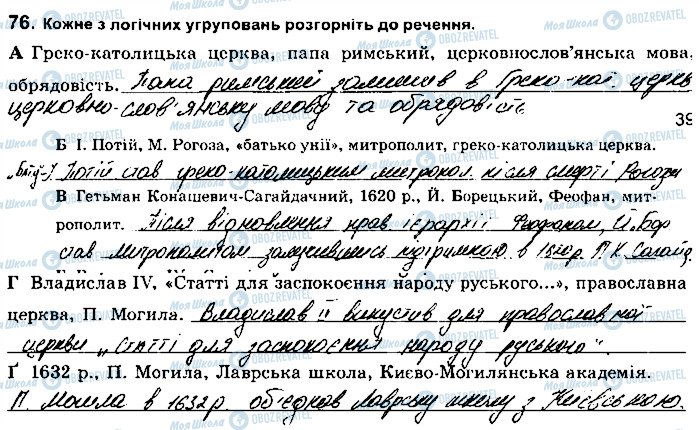 76. Кожне з логічних угруповань розгорніть до речення.
А Греко-католицька церква, папа римський, церковнослов'янська мова,
обрядовість. Папа римський залишив в Греко-кат. церкв
церковно-слов'янську мову та обрядовість
39
Б І. Потій, М. Рогоза, «батько унії», митрополит, греко-католицька церква.
Потій став греко-католицьким митропол. після смерті Рогози
В Гетьман Конашевич-Сагайдачний, 1620 р., Й. Борецький, Феофан, мит-
рополит. Після відновлення прав ієрархії Феофаном, Й. Бор
став митрополитом заручившись підтримкою в 1620р. П.К. Сагайд.
Ґ Владислав IV, «Статті для заспокоєння народу руського...», православна
церква, П. Могила. Владислав ІІ випустив для православної
церкви „Статті для заспокоєння народу руського".
Ґ 1632 р., П. Могила, Лаврська школа, Києво-Могилянська академія.
П. Могила в 1632р об'єднав Лаврську школу з Київською.